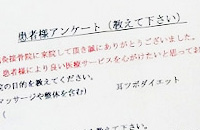 患者様アンケート(教えて下さい)
灸接骨院に来院して頂き誠にありがとうございました。
患者様により良い医療サービスを心がけたいと思ってお
の目的を教えてください。
マッサージや整体を含む)
耳ツボダイエット
(